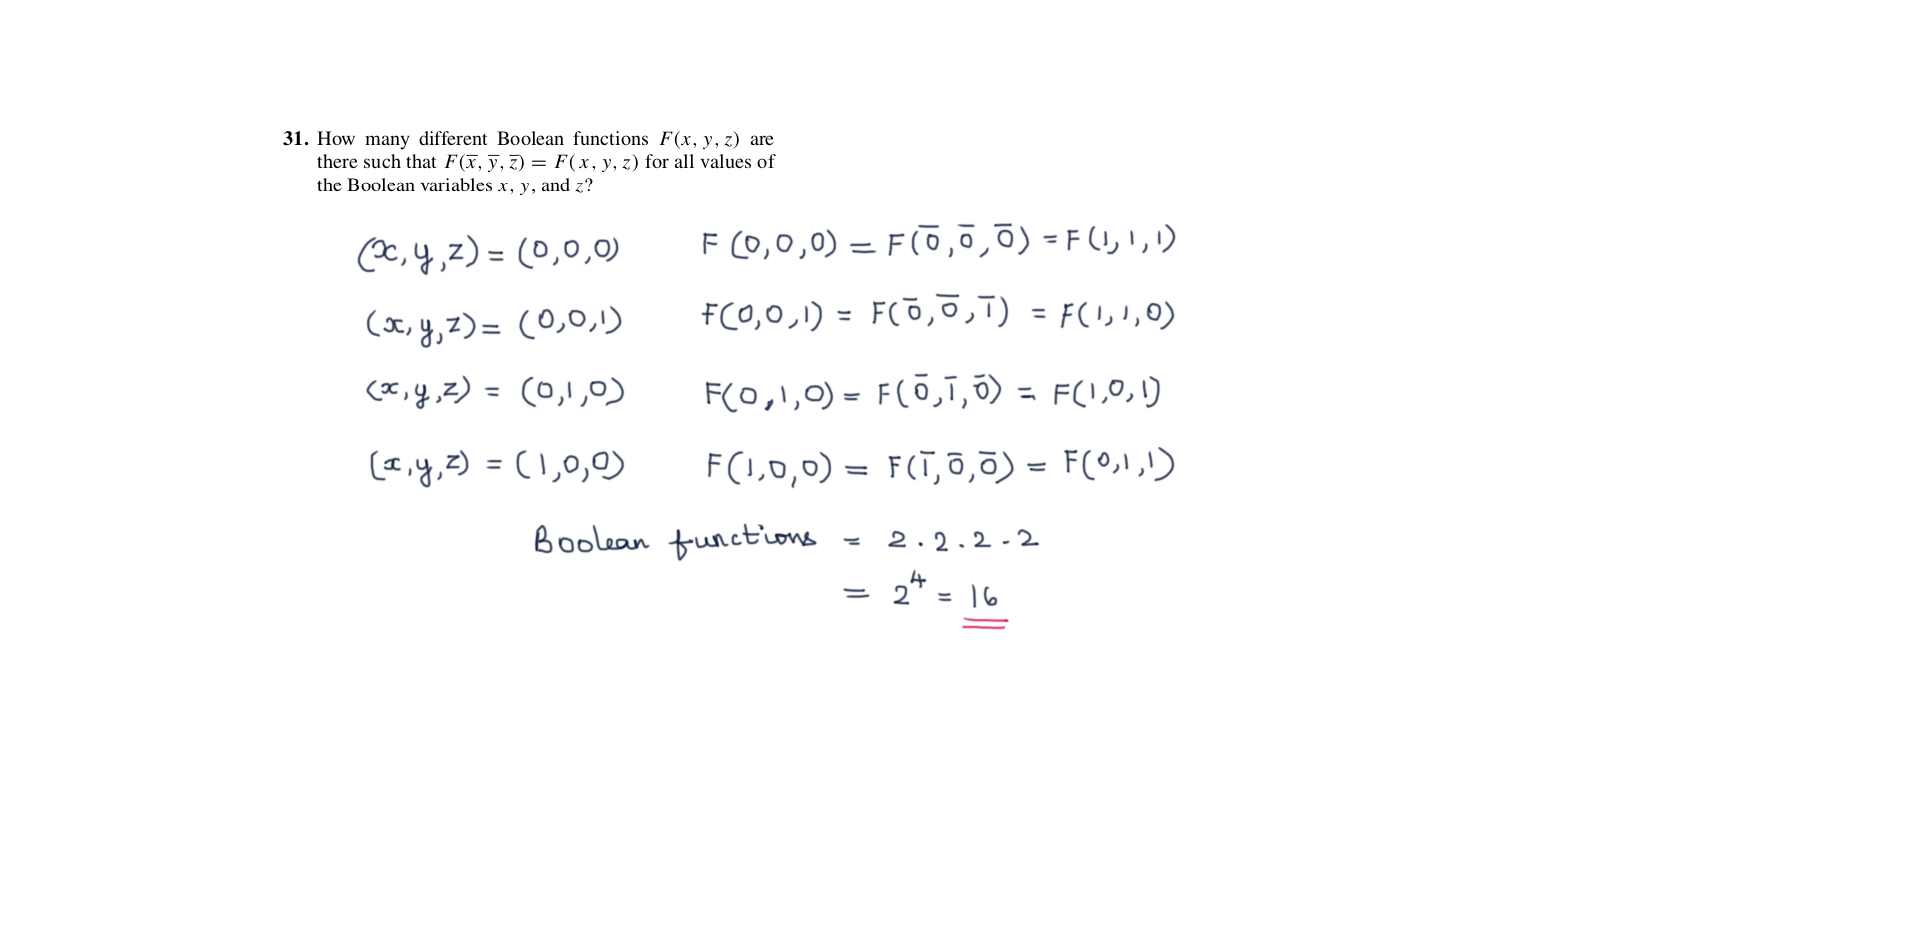 31. How many different Boolean functions F(x, y, z) are
there such that F(x̅, y̅, z̅) = F(x, y, z) for all values of
the Boolean variables x, y, and z?
(x,y,z) = (0,0,0) F(0,0,0) = F(0̅,0̅,0̅) = F(1,1,1)
(x,y,z) = (0,0,1) F(0,0,1) = F(0̅,0̅,1̅) = F(1,1,0)
(x,y,z) = (0,1,0) F(0,1,0) = F(0̅,1̅,0̅) = F(1,0,1)
(x,y,z) = (1,0,0) F(1,0,0) = F(1̅,0̅,0̅) = F(0,1,1)
Boolean functions = 2.2.2.2
= 2⁴ = 16